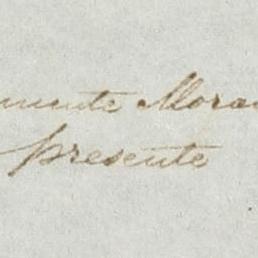 mente Mora
presente